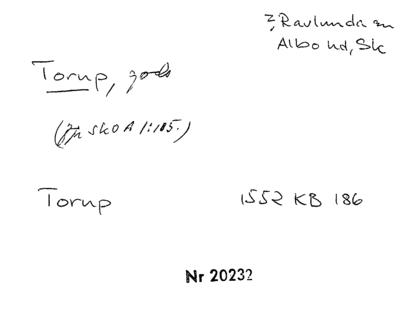 ?, Ravlunda sn
Albo hd, Sk
Torup, gods
(jfr SkO A 1:105.)
Torup 1552 KB 186
Nr 20232